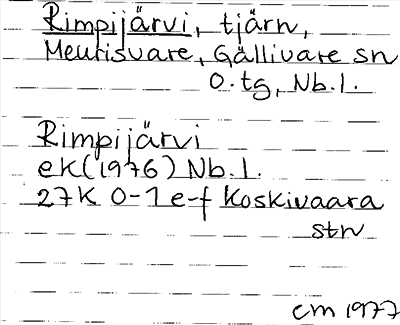 Rimpijärvi, tjärn,
Meurisvare, Gällivare sn
O.tg, Nb.l.
Rimpijärvi
ek (1976) Nb.l.
27K 0-1 e-f Koskivaara
stn
CM 1977